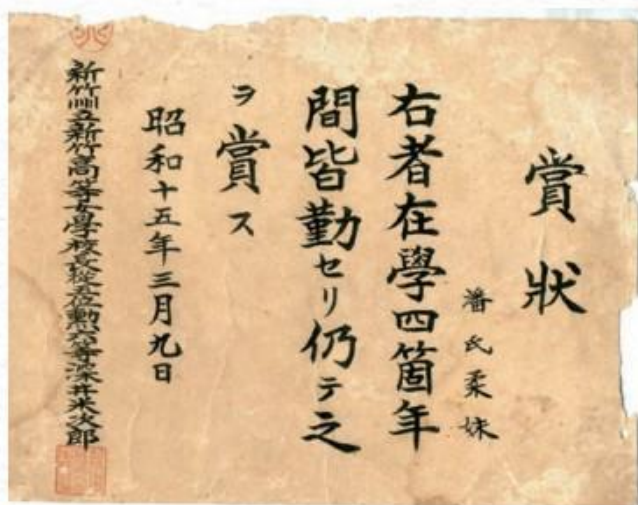 賞狀
潘氏柔妹
右者在學四箇年
間皆勤セリ仍テ之
ヲ賞ス
昭和十五年三月九日
新竹州立新竹高等女學校長從五位勳六等深井米次郎